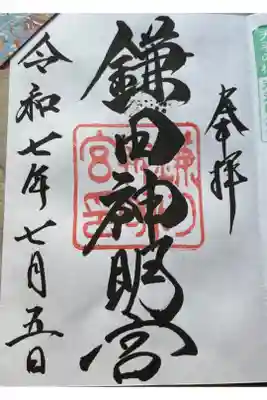 奉拝
鎌田神明宮
令和七年七月五日